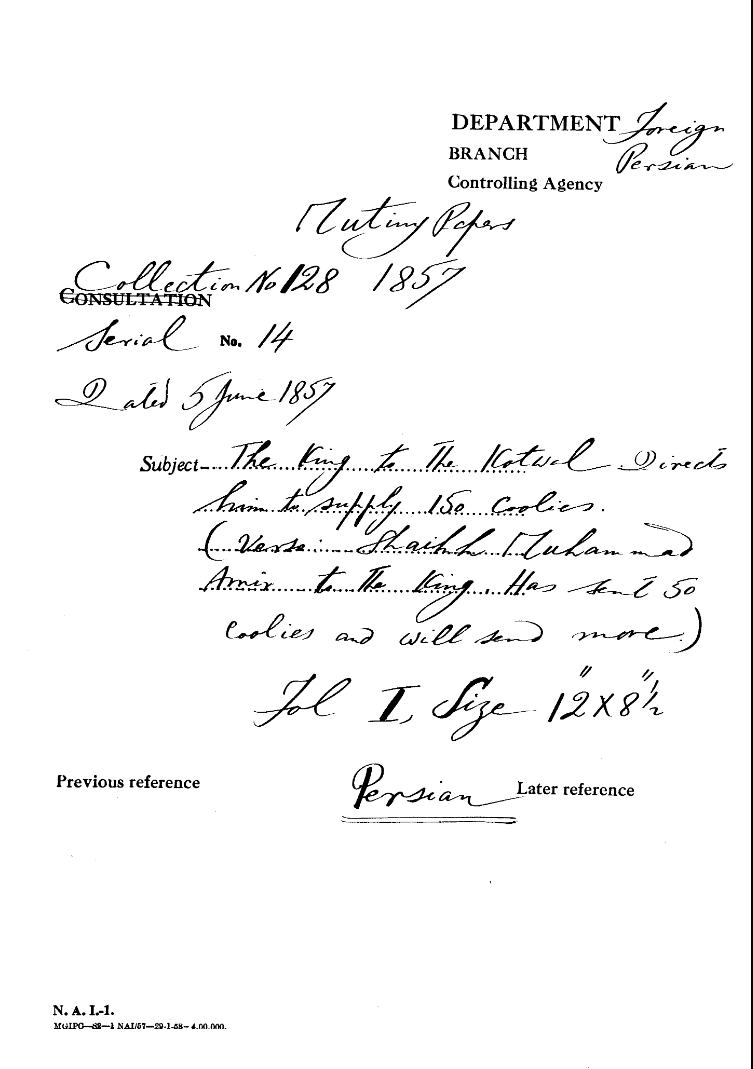 DEPARTMENT Foreign
BRANCH Persian
Controlling Agency
Mutiny Papers
Collection No 128 1857
CONSULTATION
Serial No. 14
Dated 5 June 1857
Subject The King to the Kotwal Directs
him to supply 150 coolies.
(Verso: Shaikh Muhammad
Amir to the King. Has sent 50
coolies and will send more.)
Fol I, Size 12" X 8"½
Previous reference Persian Later reference
N. A. I.-1.
MGIPC—S2—1 NAI/57—29-1-58—4,00,000.